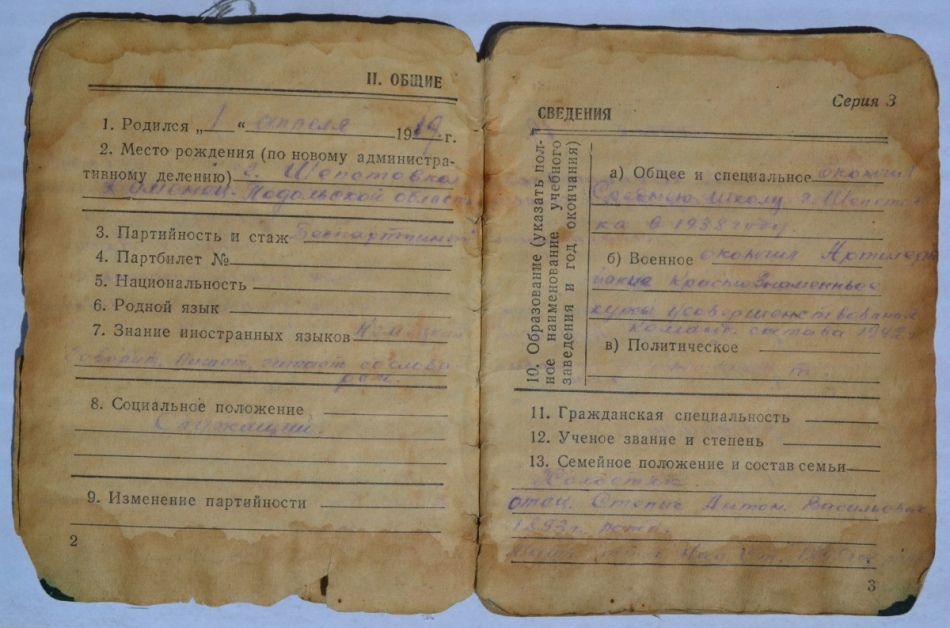 II. ОБЩИЕ
1. Родился „ 1 “ апреля 1919 г.
2. Место рождения (по новому администра-
тивному делению) г. Шепетовка
Каменец-Подольской област
3. Партийность и стаж Беспартийный
4. Партбилет №
5. Национальность
6. Родной язык
7. Знание иностранных языков
говорит, пишет, читает со слова
рем.
8. Социальное положение
Служащий.
9. Изменение партийности
2
СВЕДЕНИЯ
Серия 3
10. Образование (указать пол-
ное наименование учебного
заведения и год окончания)
а) Общее и специальное окончил
Среднюю школу г. Шепетов
ка в 1938 году.
б) Военное окончил Артилери
йские Краснознаменные
курсы усовершенствования
команд. состава 1942
в) Политическое
11. Гражданская специальность
12. Ученое звание и степень
13. Семейное положение и состав семьи
Холостяк
отец Антон Васильевич
1893г. рожд.
3